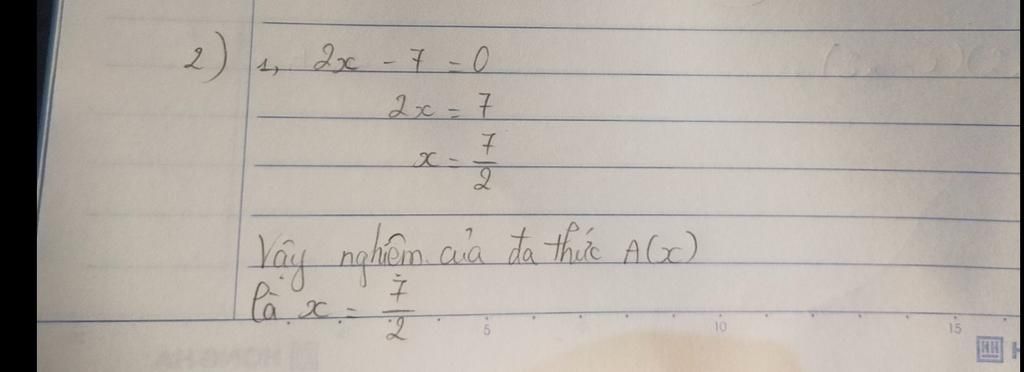 2) 1, 2x - 7 = 0
2x = 7
x = 7/2
Vậy nghiệm của đa thức A(x)
là x = 7/2
5 10 15
HH H